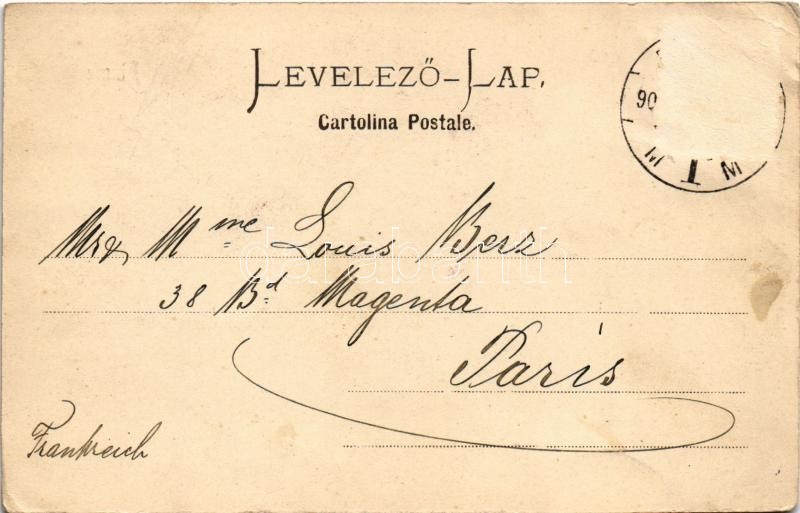 LEVELEZŐ-LAP.
Cartolina Postale.
90
M T M
Mr & Mme Louis Berz
38 Bd Magenta
Paris
Frankreich
darabanth